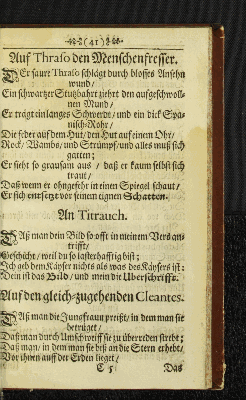 (41)
Auf Thraso den Menschenfresser.
DEr saure Thraso schlägt durch blosses Ansehn
wund/
Ein schwartzer Stutzbahrt ziehrt den aufgeschwoll-
nen Mund/
Er trägt ein langes Schwerdt/ und ein dick Spa-
nisch-Rohr/
Die feder auf dem Hut/ den Hut auf einem Ohr/
Rock/ Wambs/ und Strümpf/ und alles muß sich
gatten;
Er sieht so grausam aus / daß er kaum selbst sich
traut/
Daß wenn er ohngefehr in einen Spiegel schaut/
Er sich entsetzt vor seinem eignen Schatten.
An Titrauch.
DAß man dein Bild so offt in meinem Vers an-
trifft/
Geschiht/ weil du so lasterhafftig bist;
Ich geb dem Käyser nichts als was des Käysers ist:
Dein ist das Bild/ und mein die Uberschrifft.
Auf den gleich-zugehenden Cleantes.
DAß man die Jungfraun preißt/ in dem man sie
betrüget/
Daß man durch Umschweiff sie zu überreden strebt;
Daß man/ in dem man sie biß an die Stern erhebt/
Vor ihnen auff der Erden lieget/
C 5
Daß